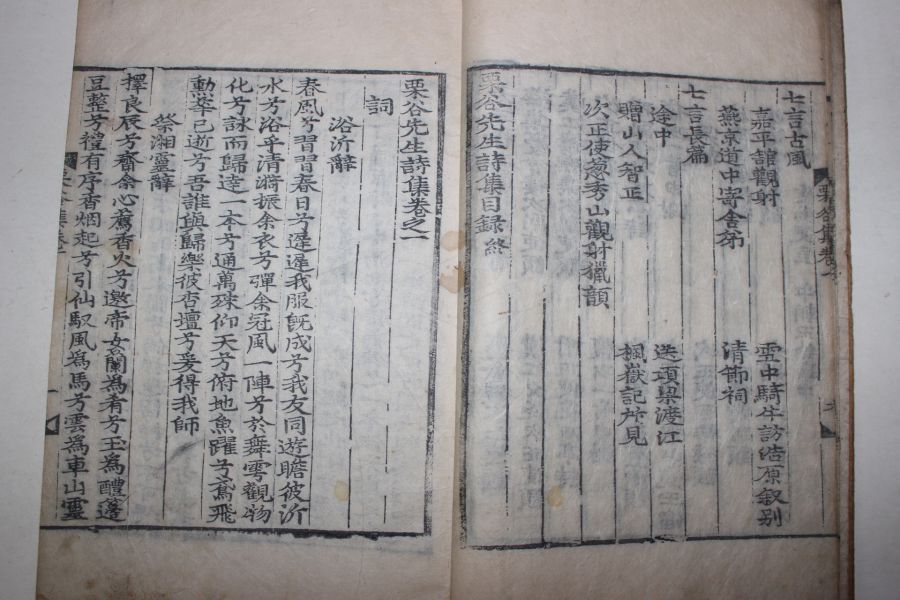 七言古風
嘉平館觀射 雪中騎牛訪浩原叙别
燕京道中寄舍弟 清節祠
七言長篇
途中 送頭渡江
贈山人智正 楓嶽記所見
次正使葱秀山觀射獵韻
栗谷先生詩集目錄 終
栗谷先生詩集卷之一
詞
浴沂辭
春風兮習習春日兮遲遲我服旣成兮我友同遊瞻彼沂
水兮浴乎清漪振余衣兮彈余冠風一陣兮於舞雩觀物
化兮詠而歸達一本兮通萬殊仰天兮俯地魚躍兮鳶飛
動華已逝兮吾誰與歸樂彼杏壇兮爰得我師
祭湘靈辭
擇良辰兮齋余心薦香火兮邀帝女蘭爲肴兮玉爲醴籩
豆整兮禮有序香烟起兮引仙馭風爲馬兮雲爲車山靈